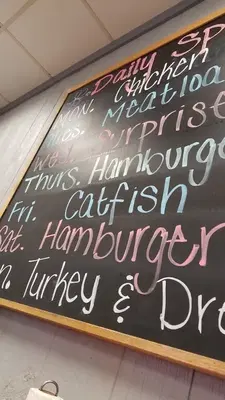 Daily Sp
on. Chicken
es. Meatloa
Surprise
Thurs. Hamburge
Fri. Catfish
Sat. Hamburger
n. Turkey & Dre